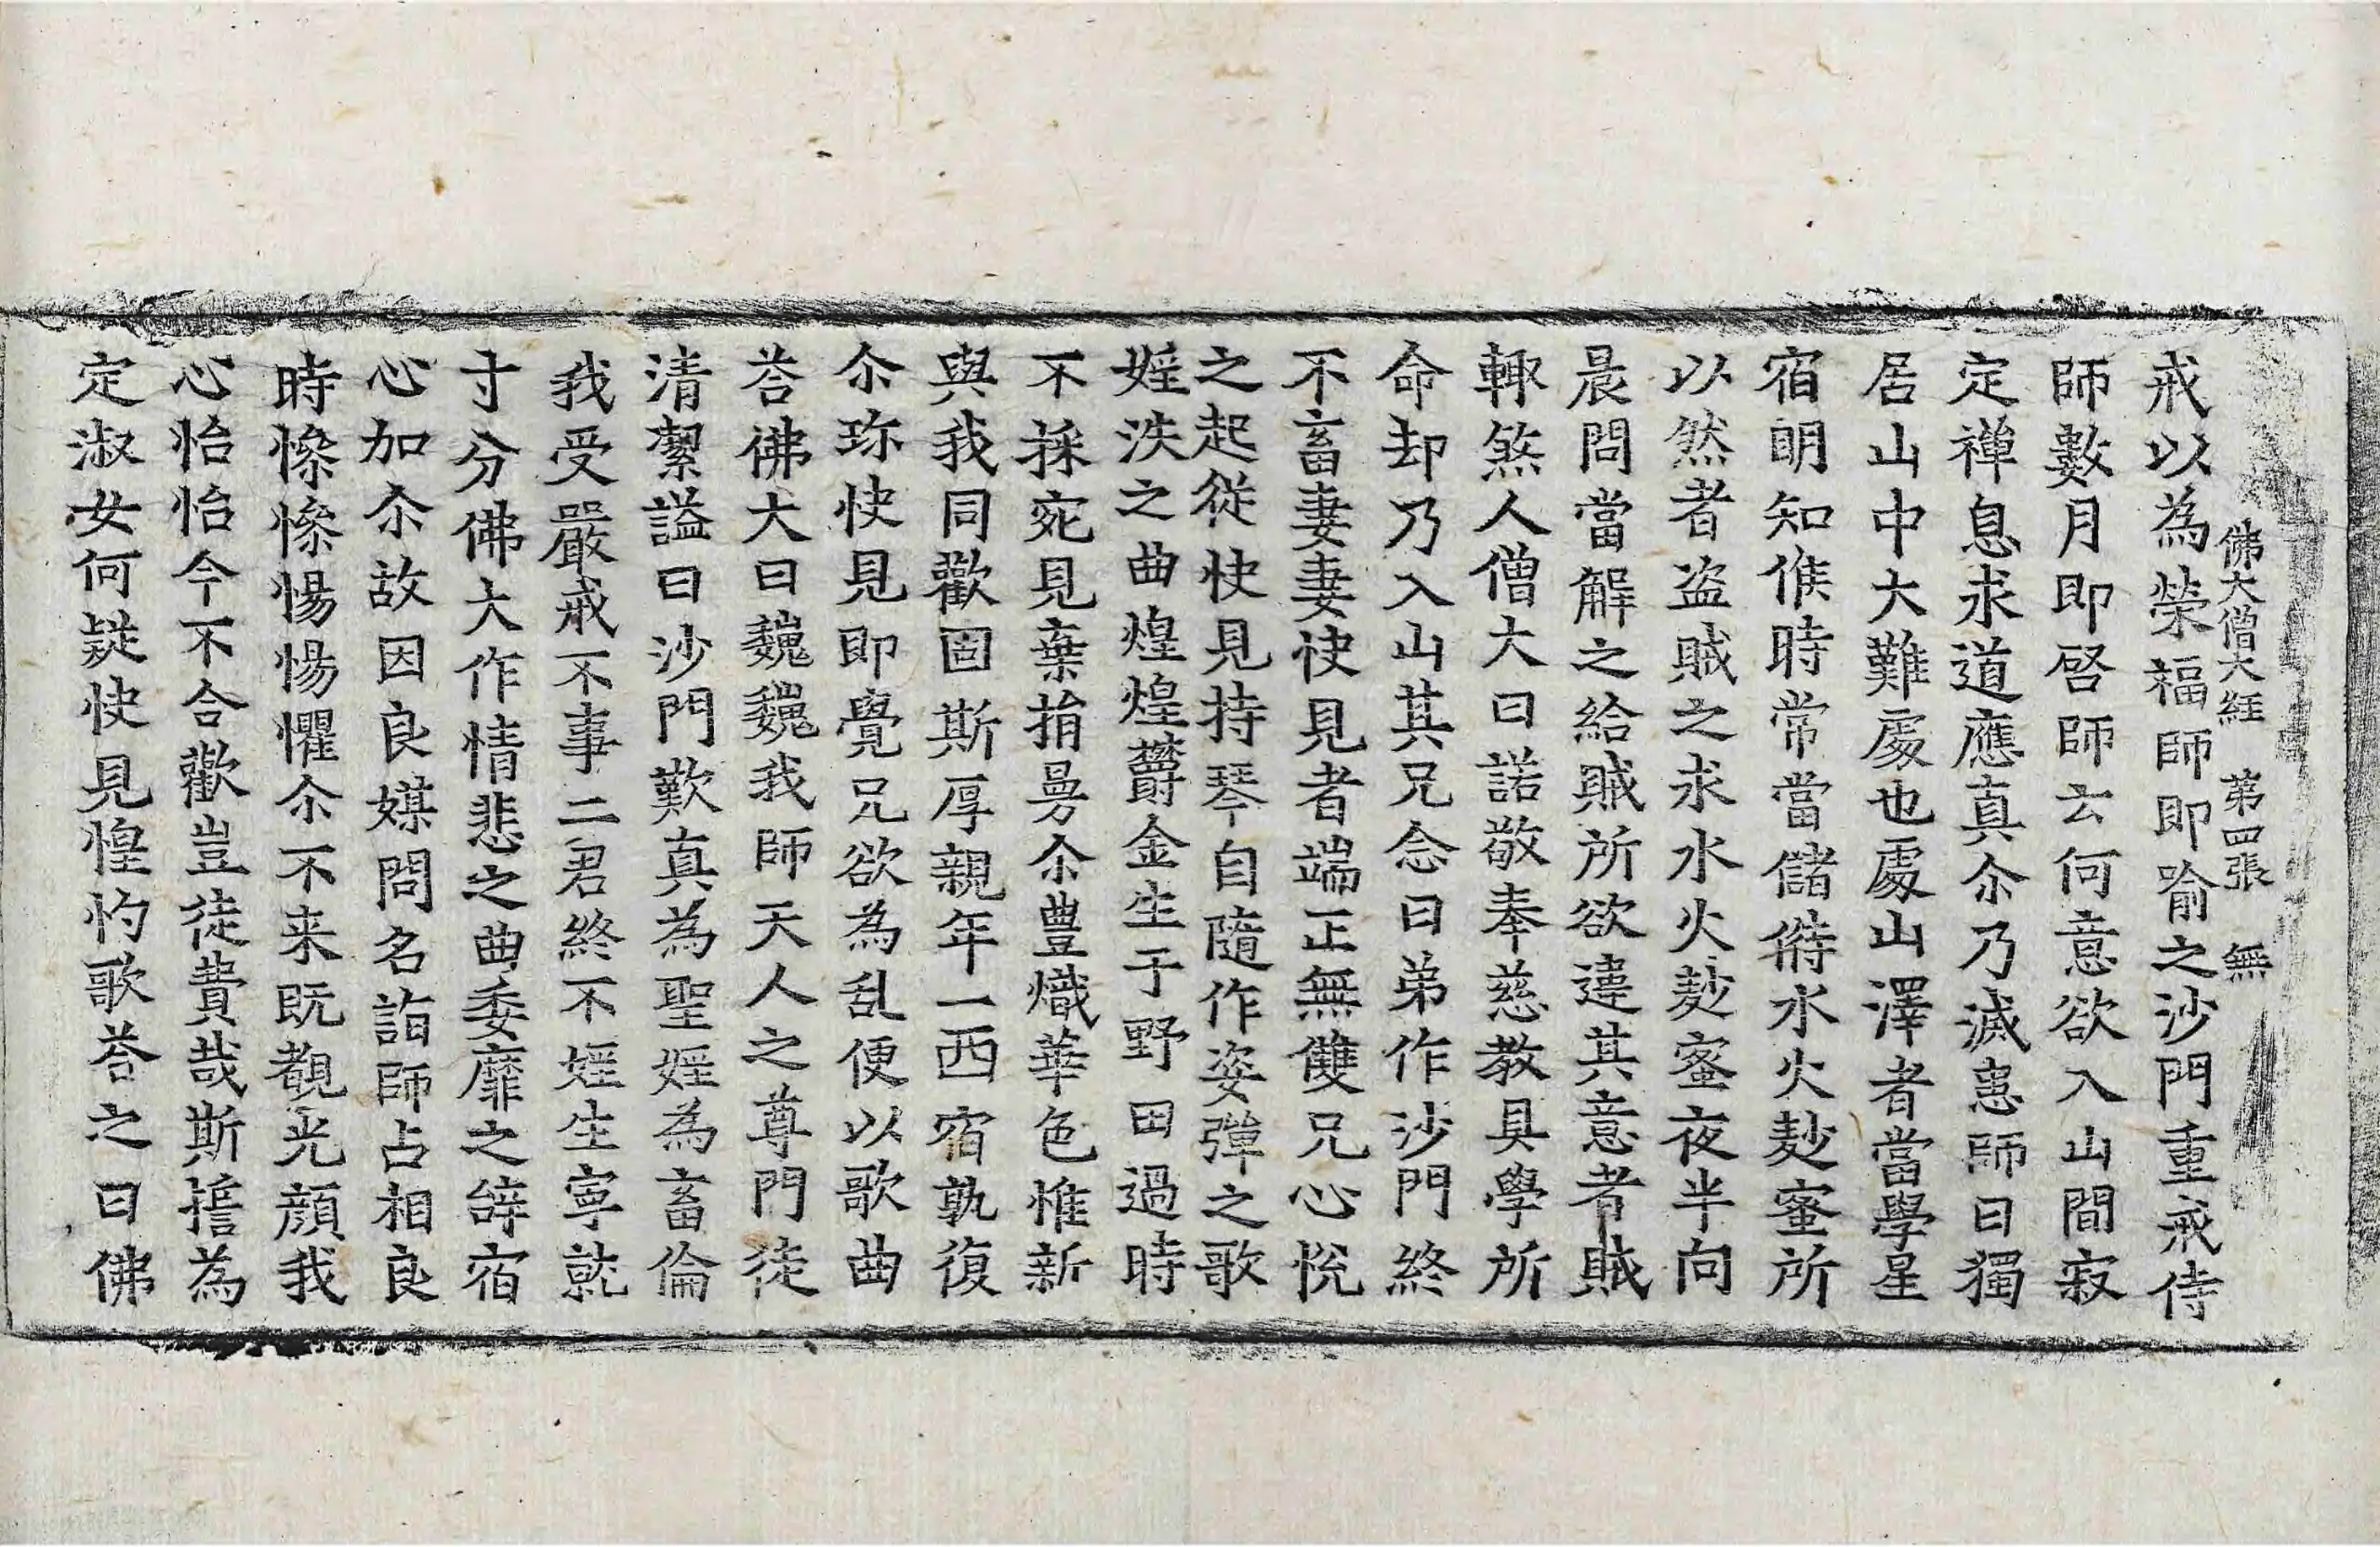 佛大僧大經 第四張 無
戒以為榮福師即喻之沙門重戒侍
師數月即啓師云何意欲入山閒寂
定禪息求道應真尒乃滅恚師曰獨
居山中大難處也處山澤者當學星
宿明知候時常當儲偫水火麨蜜所
以然者盗賊之求水火麨蜜夜半向
晨問當解之給賊所欲違其意者賊
輙煞人僧大曰諾敬奉慈教具學所
命却乃入山其兄念曰弟作沙門終
不畜妻妻快見者端正無雙兄心悅
之起從快見持琴自隨作姿彈之歌
婬泆之曲煌煌欝金生于野田過時
不採宛見棄捐曼尒豊熾華色惟新
與我同歡固斯厚親年一西宿孰復
尒珎快見即覺兄欲為乱便以歌曲
荅佛大曰巍巍我師天人之尊門徒
清潔謚曰沙門歎真為聖婬為畜倫
我受嚴戒不事二君終不婬生寧就
寸分佛大作情悲之曲委靡之辝宿
心加尒故因良媒問名詣師占相良
時慘慘惕惕懼尒不来既覩光顔我
心怡怡今不合歡豈徒費哉斯擔為
定淑女何疑快見惶灼歌荅之曰佛